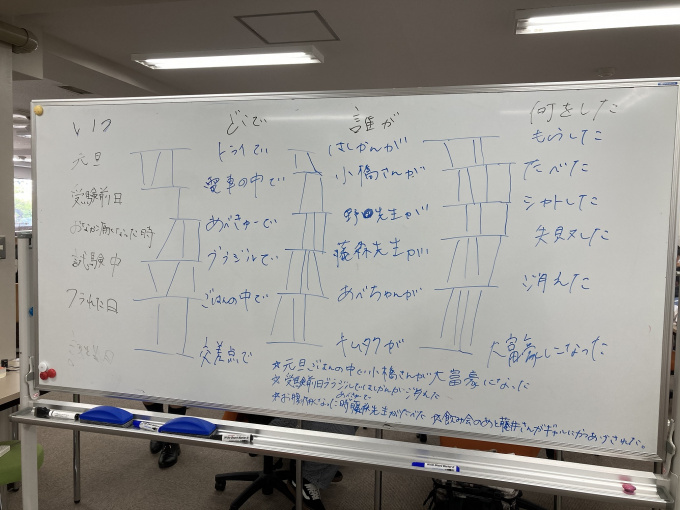 いつ どこで 誰が 何をした
元旦 トライで はしかんが もうしこした
受験前日 電車の中で 小橋さんが たべた
おなか痛くなった時 あべきゅーで 先生が シャトした
試験中 ブラジルで 藤森先生が 失敗した
フラれた日 ごはんの中で あべちゃんが 消えた
交差点で キムタクが 大富豪になった
☆元旦ごはんの中で小橋さんが大富豪になった
☆受験前日ブラジルではしかんが消えた
あべきゅーで
☆お腹痛くなった時藤森先生がたべた ☆飲み会のあと藤井さんがギャルにかつあげされた。